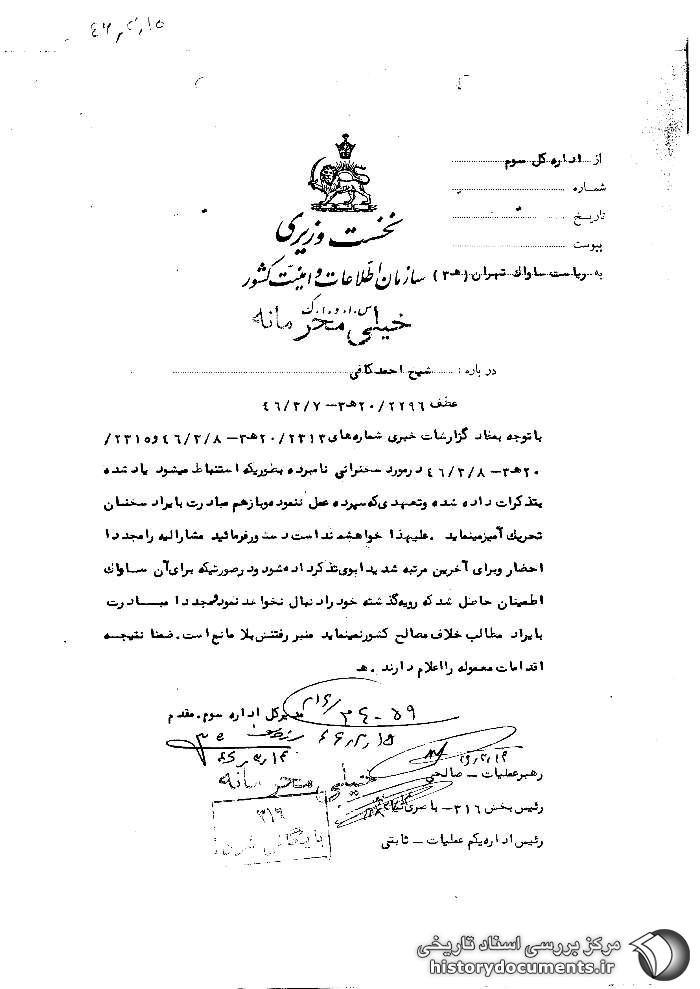 ۴۶٫۳٫۱۵
از اداره کل سوم
شماره
تاریخ
پیوست
به ریاست ساواک تهران (۳هـ)
نخست وزیری
سازمان اطلاعات و امنیت کشور
س.ا.و.ا.ک
خیلی محرمانه
درباره : شیخ احمد کافی
عطف ۲۲۹۶/ ۲۰هـ۳ – ۴۶/۳/۷
با توجه بمفاد گزارشات خبری شماره‌های ۲۳۱۳/ ۲۰هـ۳ – ۴۶/۳/۸ و ۲۳۱۵/
۲۰هـ۳ – ۴۶/۳/۸ درمورد سخنرانی نامبرده بطوریکه استنباط میشود یاد شده
بتذکرات داده شده وتعهدی که سپرده عمل ننموده وبازهم مبادرت بایراد سخنان
تحریک آمیز مینماید . علیهذا خواهشمند است دستور فرمائید مشارالیه را مجددا
احضار وبرای آخرین مرتبه شدیدا بوی تذکر داده شود ودرصورتیکه برای آن ساواک
اطمینان حاصل شد که رویه گذشته خود را دنبال نخواهد نمود ومجددا مبادرت
بایراد مطالب خلاف مصالح کشور نمینماید منبر رفتنش بلا مانع است. ضمنا نتیجه
اقدامات معموله را اعلام دارند . هـ
مدیرکل اداره سوم . مقدم
۳۱۶/
۳۴-۵۹
خیلی محرمانه
رهبر عملیات – صالحی
رئیس بخش ۳۱۶ –
رئیس اداره یکم عملیات – ثابتی
۳۱۶
بایگانی شود
مرکز بررسی اسناد تاریخی
historydocuments.ir